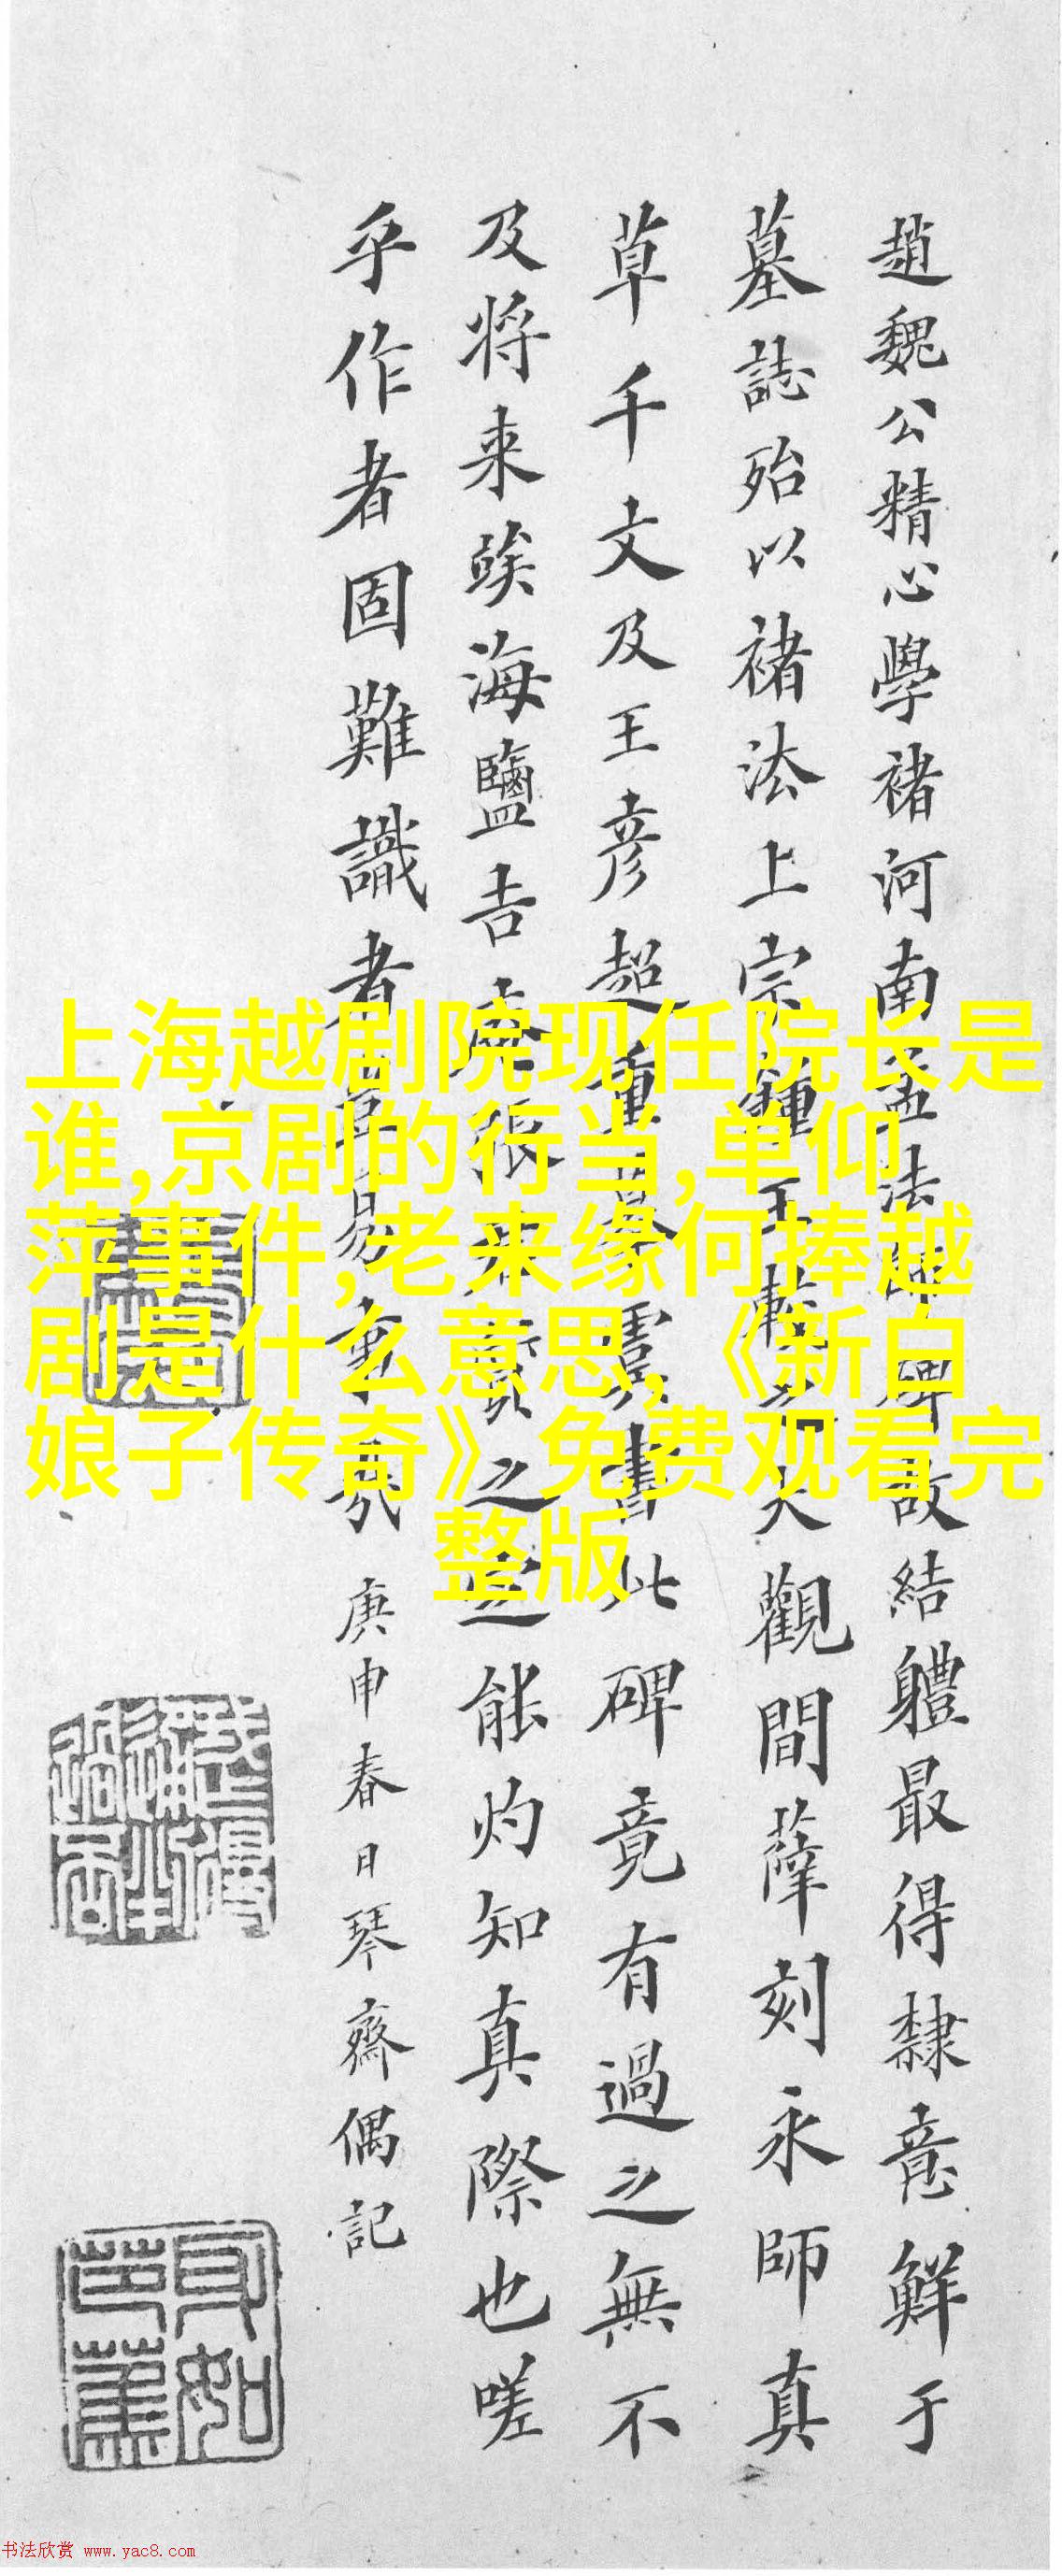 趙魏公精心學褚河南孟法師碑故結軆最得隸意鮮于
墓誌殆以褚法上宗鍾王較之大觀間薛刻永師真
草千文及王彦超重摹虞書此碑竟有過之無不
及将来竢海鹽吉老張君鑒之定能灼知真際也嗟
乎作者固難識者亦豈易事哉
庚申春日琴齋偶記
上海越剧院现任院长是
谁,京剧的行当,单仰
萍事件,老来缘何捧越
剧是什么意思,《新白
娘子传奇》免费观看完
整版
书法欣赏 www.yac8.com